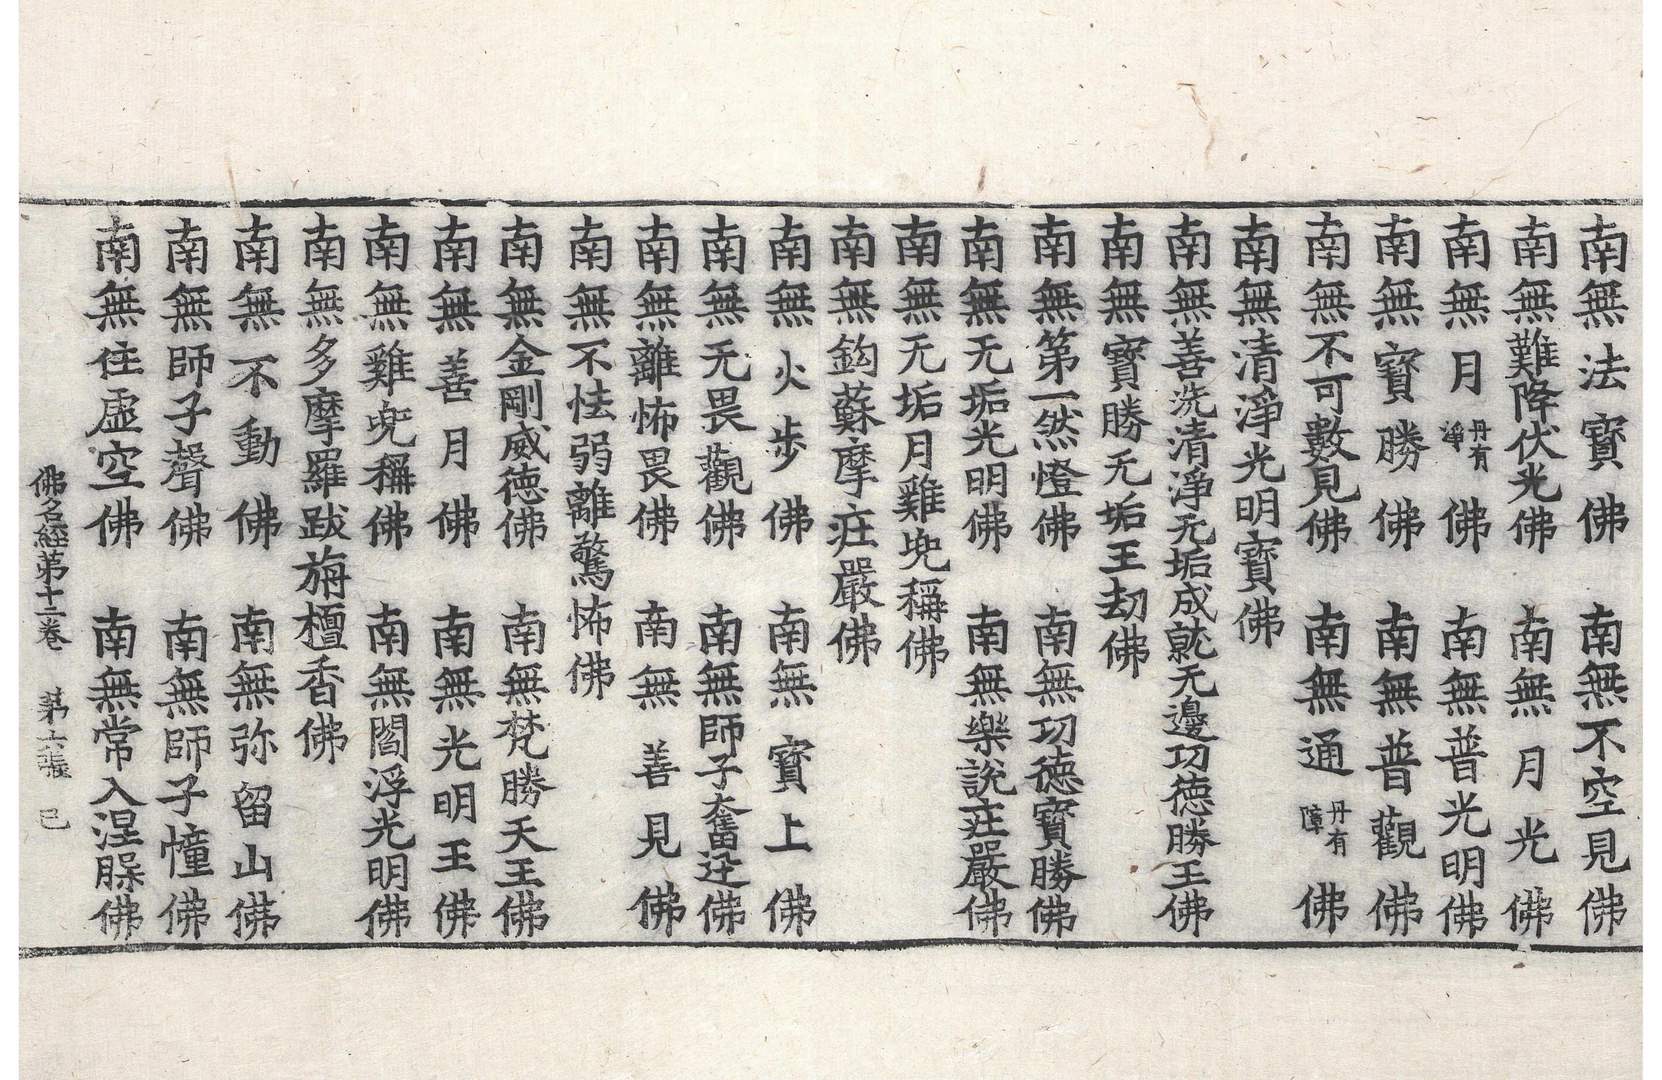 南無法寶佛　南無不空見佛
南無難降伏光佛　南無月光佛
南無月丹有淨佛　南無普光明佛
南無寶勝佛　南無普觀佛
南無不可數見佛　南無通丹有障佛
南無清淨光明寶佛
南無善洗清淨无垢成就无邊功德勝王佛
南無寶勝无垢王劫佛
南無第一然燈佛　南無功德寶勝佛
南無无垢光明佛　南無樂說莊嚴佛
南無无垢月雞兜稱佛
南無鈎蘇摩莊嚴佛
南無火步佛　南無寶上佛
南無无畏觀佛　南無師子奮迅佛
南無離怖畏佛　南無善見佛
南無不怯弱離驚怖佛
南無金剛威德佛　南無梵勝天王佛
南無善月佛　南無光明王佛
南無雞兜稱佛　南無閻浮光明佛
南無多摩羅跋旃檀香佛
南無不動佛　南無弥留山佛
南無師子聲佛　南無師子幢佛
南無住虛空佛　南無常入涅槃佛
佛名經第十二卷　第六張　己